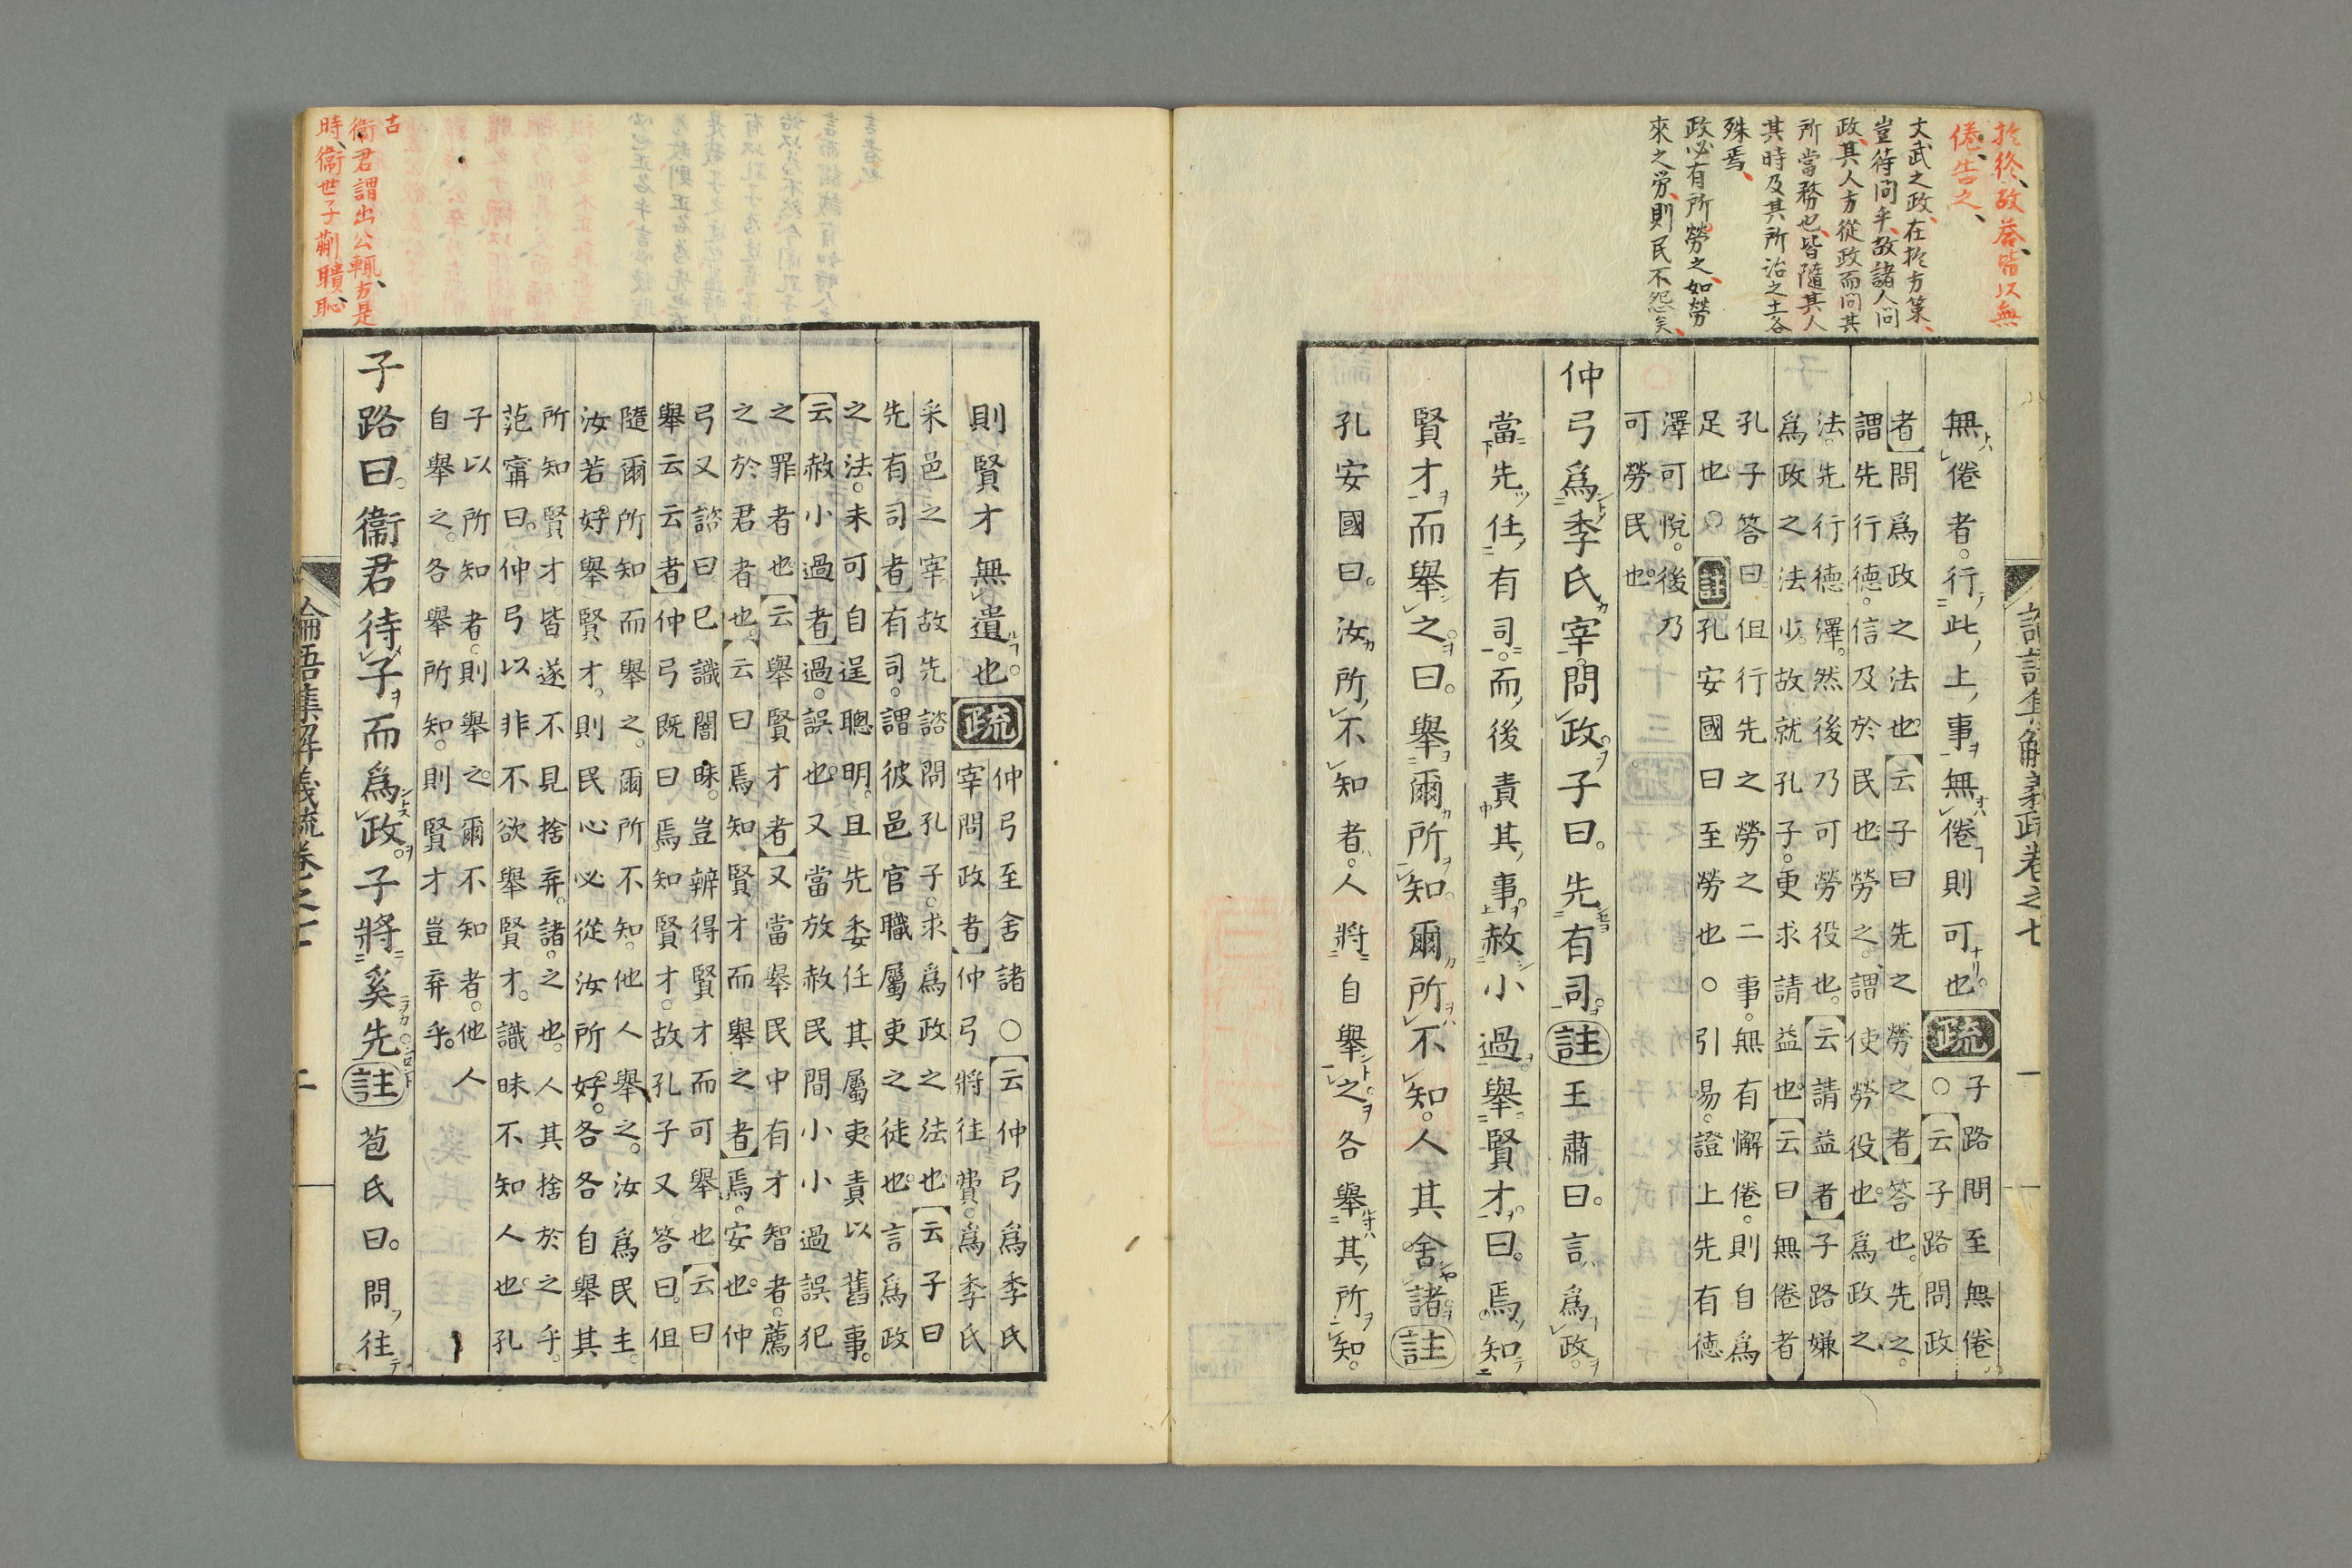 於終、故荅、皆以無
倦告之、
文武之政、在於方策、
豈待問乎、故諸人問
政、其人方從政而問其
所當務也、皆隨其人
其時及其所治之土各
殊焉、
政必有所勞之、如勞
來之勞、則民不怨矣、
無倦者。行此上事無倦則可也。疏子路問至無倦
○云子路問政
者問爲政之法也云子曰先之勞之。者答也。先之。
謂先行德。信及於民也勞之。謂使勞役也。爲政之
法。先行德澤。然後乃可勞役也。云請益者子路嫌
爲政之法少。故就孔子。更求請益也云曰無倦者
孔子答曰但行先之勞之二事。無有懈倦。則自爲
足也。○註孔安國曰至勞也○引易。證上先有德
澤可悅。後乃
可勞民也。
仲弓爲季氏宰問政。子曰。先有司。註王肅曰。言爲政。
當先任有司。而後責其事。赦小過。舉賢才。曰。焉知
賢才而舉之。曰。舉爾所知。爾所不知。人其舍諸。註
孔安國曰。汝所不知者。人將自舉之。各舉其所知。
則賢才無遺也。疏仲弓至舍諸○云仲弓爲季氏
宰問政者仲弓將往費。爲季氏
采邑之宰故先諮問孔子。求爲政之法也云子曰
先有司者有司。謂彼邑官職屬吏之徒也。言爲政
之法。未可自逞聰明。且先委任其屬吏責以舊事。
云赦小過者過。誤也。又當放赦民間小小過誤犯
之罪者也。云舉賢才者又當舉民中有才智者。薦
之於君者也。云曰焉知賢才而舉之者焉。安也。仲
弓又諮曰已識闇昧。豈辨得賢才而可舉也。云曰
舉云云者仲弓既曰焉知賢才。故孔子又答曰。但
隨爾所知而舉之。爾所不知。他人舉之。汝爲民主。
汝若好舉賢才。則民心必從汝所好。各各自舉其
所知賢才。皆遂不見捨弃。諸。之也。人其捨於之乎。
范甯曰。仲弓以非不欲舉賢才。識昧不知人也。孔
子以所知者。則舉之。爾不知者。他人
自舉之。各舉所知。則賢才豈弃乎。
子路曰。衞君待子而爲政。子將奚先。註苞氏曰。問往
論語集解義疏卷之七
吉
衞君謂出公輒、方是
時、衞世子蒯聵、恥